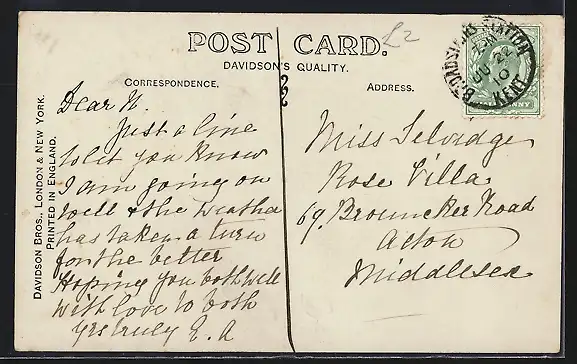 POST CARD.
£2
DAVIDSON'S QUALITY.
CORRESPONDENCE.
ADDRESS.
DAVIDSON BROS., LONDON & NEW YORK.
PRINTED IN ENGLAND.
BROADSTAIRS STATION
JU 22
10
KENT
HALFPENNY
Dear N.
Just a line
to let you know
I am going on
well & the weather
has taken a turn
for the better
Hoping you both well
with love to both
yrs truly E. A
Miss Selvidge
Rose Villa
69, Brouncker Road
Acton
Middlesex